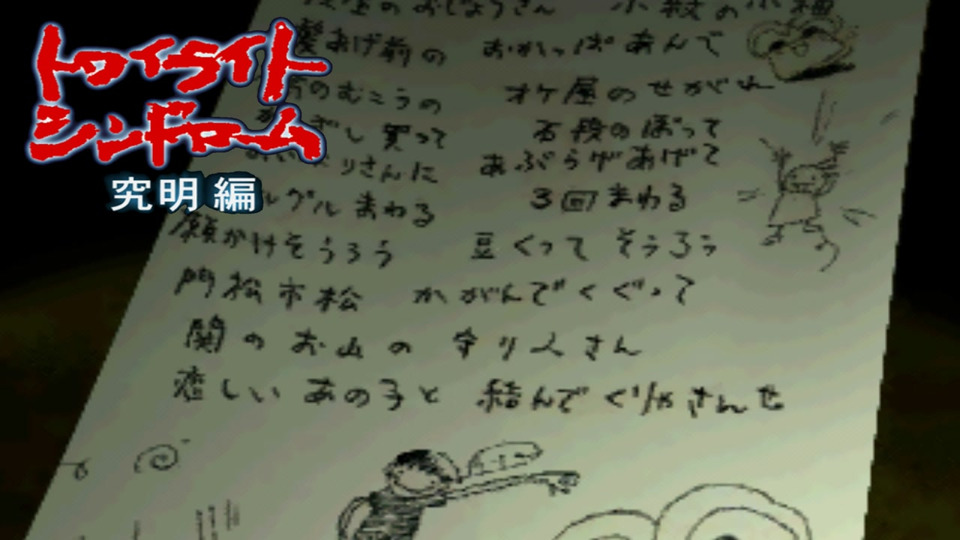 トワイライト
シンドローム
究明編
のおじょうさん 小枝の小梅
髪あげ前の おかっぱあんで
のむこうの オケ屋のせがれ
ざし買って 石段のぼって
りさんに あぶらげあげて
グルまわる 3回まわる
願かけそうろう 豆くってそうろう
門松市松 かがんでくぐって
関のお山の守り人さん
恋しいあの子と結んでくりゃさんせ